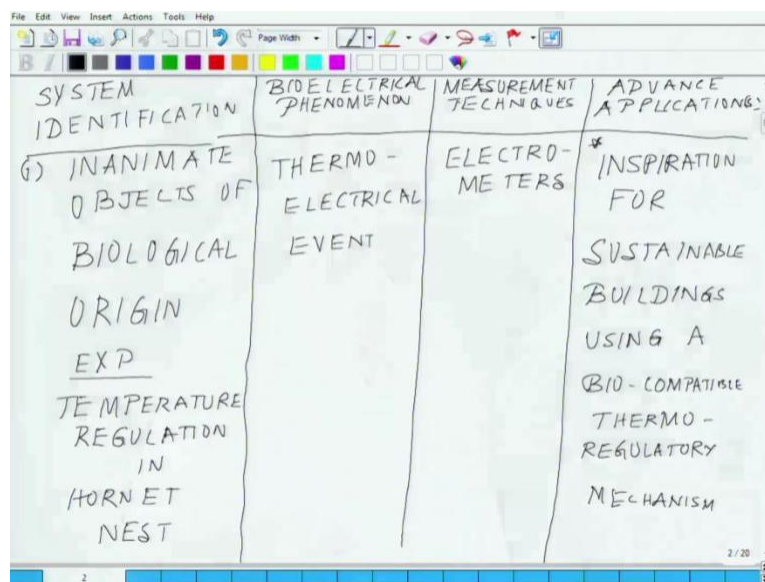 File Edit View Insert Actions Tools Help
Page Width
SYSTEM
IDENTIFICATION
BIOELECTRICAL
PHENOMENON
MEASUREMENT
TECHNIQUES
ADVANCE
APPLICATIONS:
G) INANIMATE
OBJECTS OF
BIOLOGICAL
ORIGIN
EXP
TEMPERATURE
REGULATION
IN
HORNET
NEST
THERMO-
ELECTRICAL
EVENT
ELECTRO-
METERS
* INSPIRATION
FOR
SUSTAINABLE
BUILDINGS
USING A
BIO-COMPATIBLE
THERMO-
REGULATORY
MECHANISM
2 / 20
2